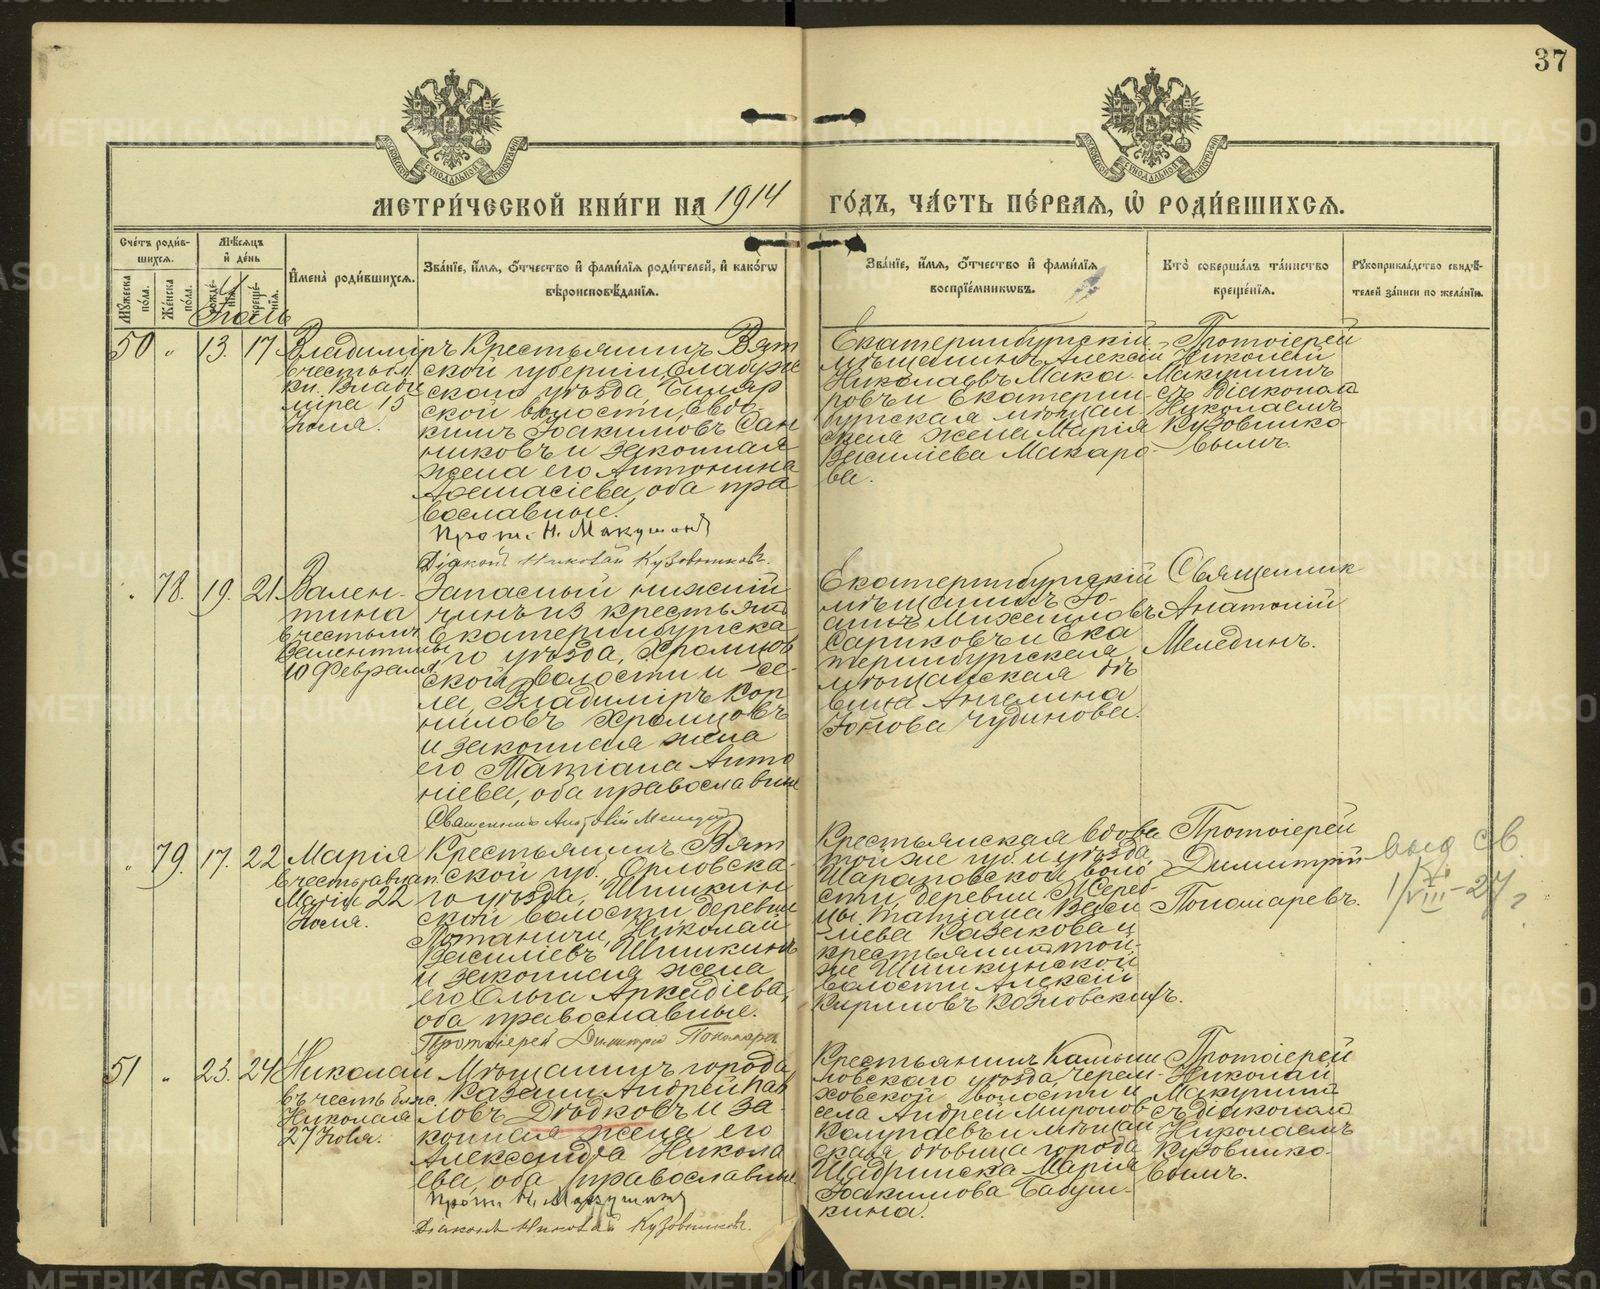 37
МЕТРИ́ЧЕСКОЙ КНИ́ГИ НА 1914 ГО́ДЪ, ЧА́СТЬ ПЕ́РВАЯ, Ѡ҆ РОДИ́ВШИХСЯ.
Сче́тъ роди́в-
шихся.
Мѣ́сяцъ
и҆ де́нь
Мꙋ́жеска по́ла.
Же́нска по́ла.
рожде-
нїя.
креще́-
нїя.
И҆мена̀ роди́вшихся.
Зва́нїе, и҆́мя, ѻ҆́тчество и҆ фами́лїя роди́телей, и҆ како́гѡ
вѣроисповѣ́данїя.
Зва́нїе, и҆́мя, ѻ҆́тчество и҆ фами́лїя
воспрїе́мникѡвъ.
Кто̀ соверша́лъ та́инство
креще́нїя.
Рꙋкоприкла́дство свидѣ́-
телей за́писи по жела́нїю.
Іюль
50 " 13. 17
Владиміръ
въ честь св.
кн. Влади
міра 15
Іюля.
Крестьянинъ Вят
ской губерніи, Елабуж
скаго уѣзда, Биляр
ской волости, Евдо
кимъ Іоакимовъ Сан
никовъ и законная
жена его Антонина
Аѳанасіева, оба пра
вославные.
Прот. Н. Макушинъ
Діаконъ Николай Кузовниковъ.
Екатеринбургскій
мѣщанинъ Алексій
Николаевъ Мака
ровъ и Екатерин-
бургская мѣщан
ская жена Марія
Василіева Макаро-
ва.
Протоіерей
Николай
Макушинъ
съ діакономъ
Николаемъ
Кузовнико-
вымъ.
" 78. 19. 21
Вален-
тина
въ честь мч.
Валентины
10 Февраля
Запасный нижній
чинъ из крестьянъ
Екатеринбургска
го уѣзда, Храмцов
ской волости и се-
ла, Владиміръ Кор
ниловъ Храмцовъ
и законная жена
его Татіана Анто
ніева, оба православные
Священникъ Анатолій Мелединъ
Екатеринбургскій
мѣщанинъ Іо-
аннъ Михаиловъ
Сариковъ и Ека
теринбургская
мѣщанская дѣ
вица Ангелина
Іонова Чудинова.
Священник
Анатолій
Мелединъ.
" 79. 17. 22
Марія
въ честь равноап.
Маріи 22
Іюля.
Крестьянинъ Вят
ской гу., Орловска-
го уѣзда, Шишкин
ской волости, деревни
Потаничи, Николай
Василіевъ Шишкинъ
и законная жена
его Ольга Аркадіева,
оба православные.
Протоіерей Димитрій Пономаревъ
Крестьянская вдова
той же губ. и уѣзда,
Шараповской воло
сти, деревни Жереб-
цы Татіана Васи
ліева Казакова и
крестьянин той-
же Шишкинской
волости Алексій
Кириловъ Козловскихъ.
Протоіерей
Димитрій
Пономаревъ.
выд св.
1/VIII-27 г
51 " 23. 24
Николай
въ честь блж.
Николая
27 Іюля.
Мѣщанинъ города
Казани Андрей Пав
ловъ Дѣдковъ и за-
конная жена его
Александра Никола
ева, оба православные
Прот. Н. Макушинъ
Діаконъ Николай Кузовниковъ.
Крестьянинъ Камыш
ловскаго уѣзда, Черем-
ховской волости и
села Андрей Миронов
Колупаевъ и мѣщан
ская дѣвица города
Шадринска Марія
Іоакимова Бабуш-
кина.
Протоіерей
Николай
Макушинъ
съ діакономъ
Николаемъ
Кузовнико-
вымъ.
METRIKI.GASO-URAL.RU